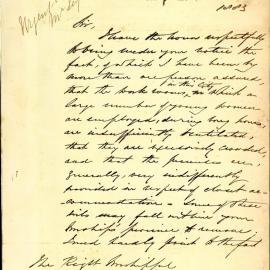 1883
Sir,
I have the honor respectfully
to bring under your notice the
fact, of which I have been by
more than one person assured
in this City
that the book rooms, in which a
large number of young women
are employed, during long hours,
are insufficiently ventilated;
that they are injuriously crowded,
and that the premises are,
generally, very indifferently
provided in respect of closet ac-
commodation. Some of these
evils may fall within your
Worship's province to remove,
I need hardly point to the fact
The Right Worshipful